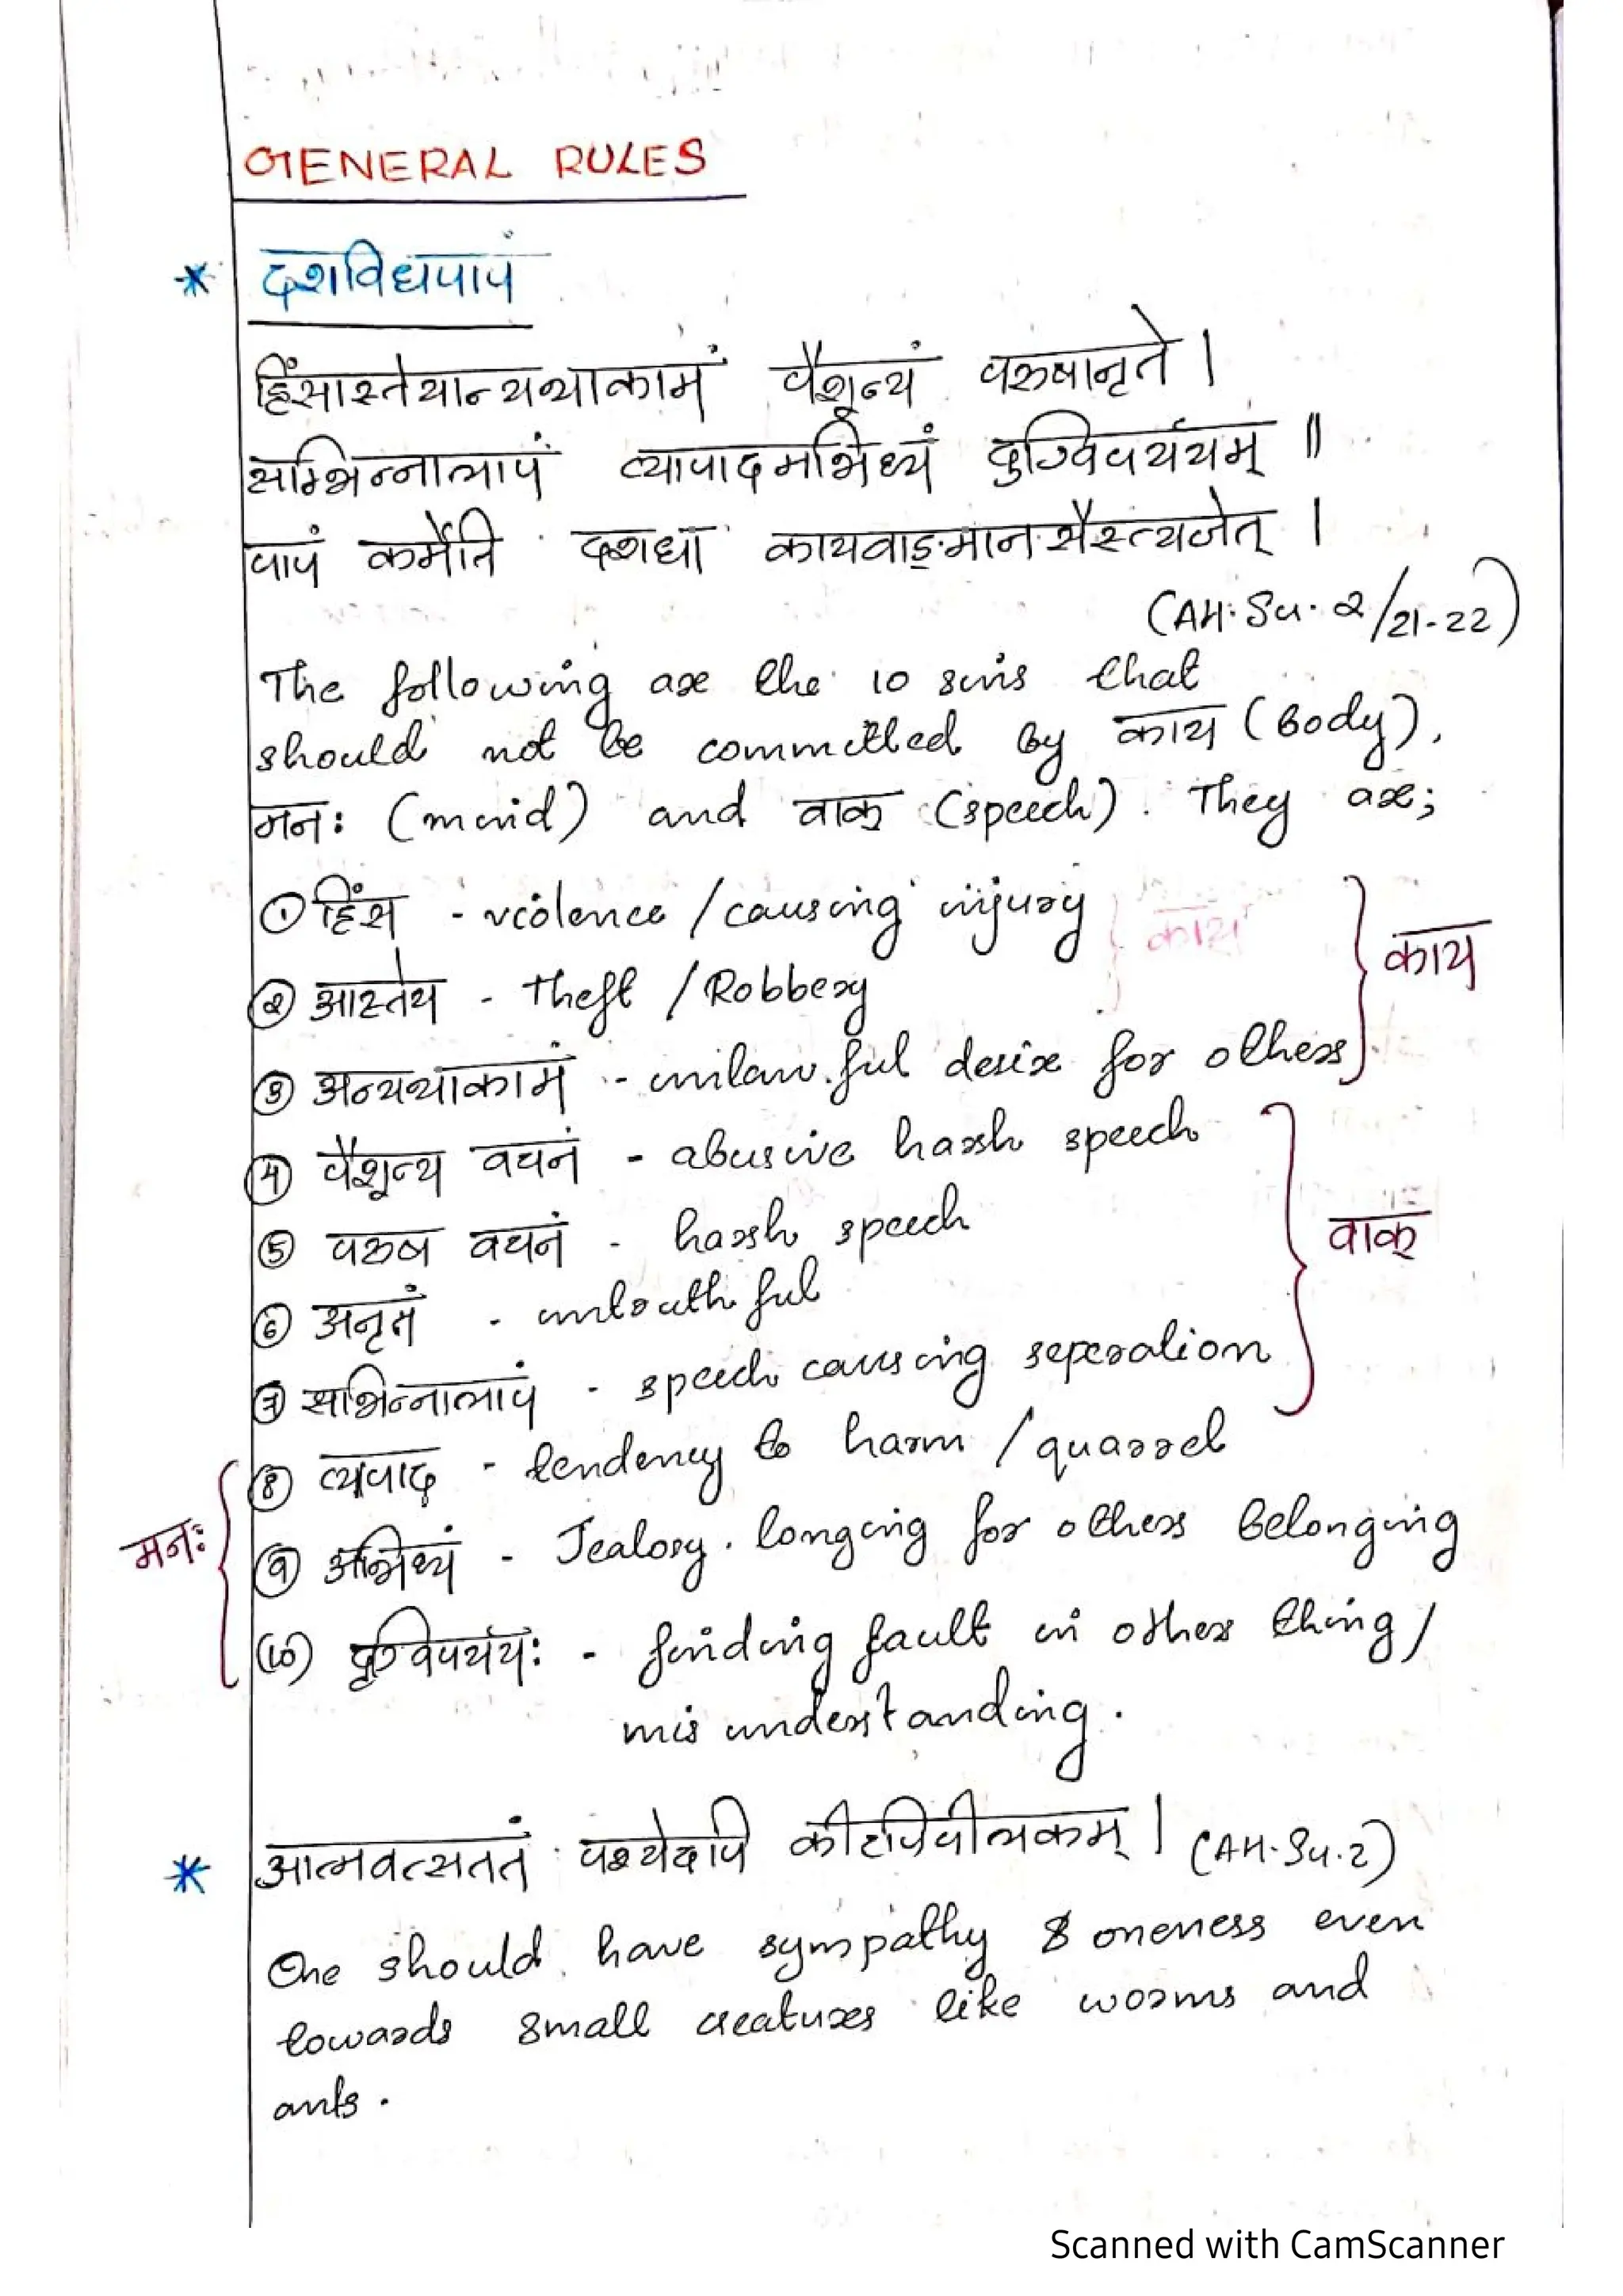 GENERAL RULES
* दशविधपापं
हिंसास्तेयान्यथाकामं पैशून्यं परुषानृते ।
सम्भिन्नालापं व्यापादमभिध्यं दृग्विपर्ययम् ॥
पापं कर्मेति दशधा कायवाङ्मानसैस्त्यजेत् ।
(AH. Su. 2/21-22)
The following are the 10 sins that
should not be committed by काय (Body),
मनः (mind) and वाक् (speech). They are;
① हिंस - violence / causing injury
② आस्तेय - Theft / Robbery
काय
③ अन्यथाकामं - unlawful desire for others
④ पैशून्य वचनं - abusive harsh speech
⑤ परुष वचनं - harsh speech
वाक्
⑥ अनृतं - untruthful
⑦ सभिन्नालापं - speech causing seperation
⑧ व्यपाद - tendency to harm / quarrel
मनः
⑨ अभिध्यं - Jealosy. longing for others Belonging
(10) दृग्विपर्ययः - finding fault in other thing /
mis understanding.
* आत्मवत्सततं पश्येदपि कीटपिपीलकम् । (AH. Su. 2)
One should have sympathy & oneness even
towards small creatures like worms and
ants.
Scanned with CamScanner